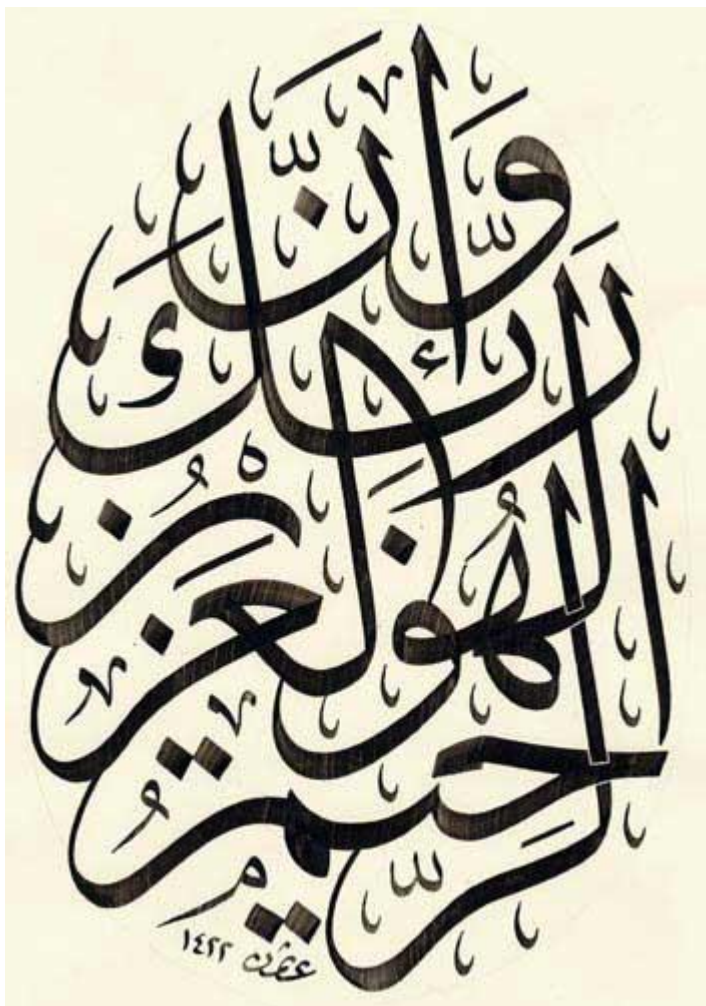 وَإِنَّ رَبَّكَ
لَهُوَ الْعَزِيزُ
الرَّحِيمُ
١٤٢٢